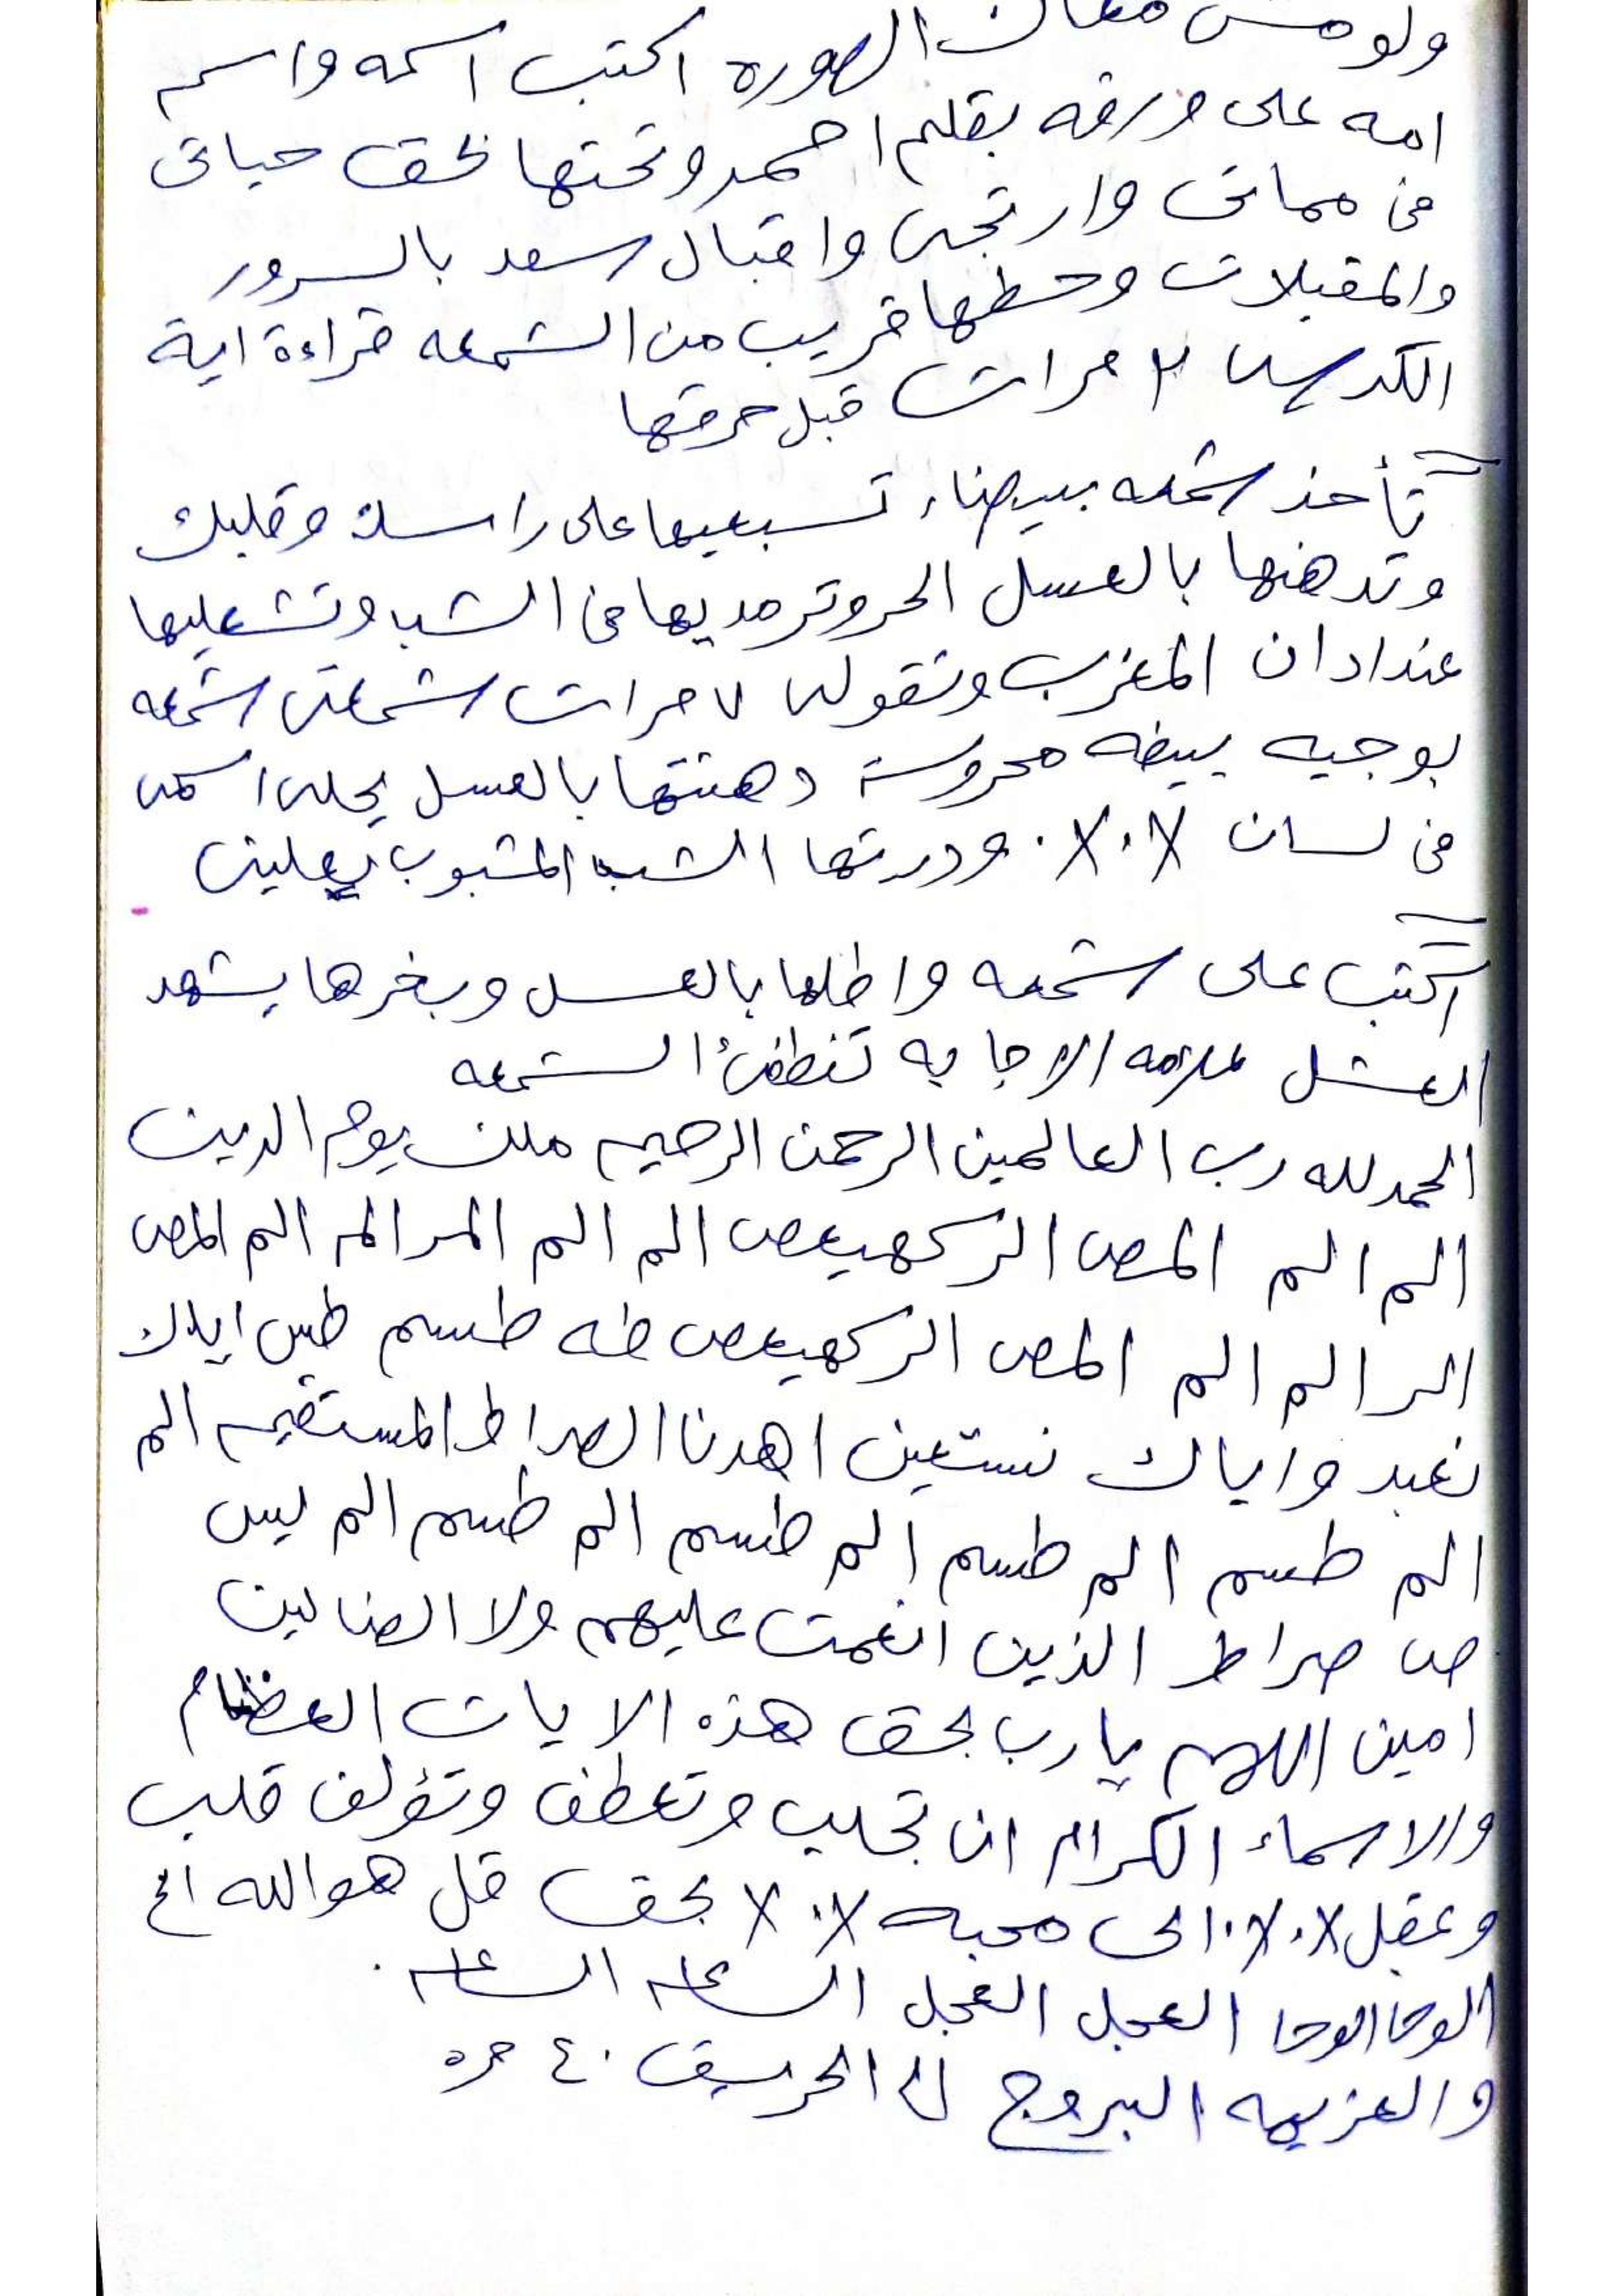 ولو مش معاك الصوره اكتب اسمه واسم
امه على ورقه بقلم احمر وتحتها بحق حياتى
فى مماتى وارتجى واقبال سعد بالسرور
والمقبلات وحطها قريب من الشمعه قراءة اية
الكرسى ٢ مرات قبل حرقها
تأخذ شمعه بيضاء تسبعيها على راسك وقلبك
وتدهنها بالعسل الحر وترمديها فى الشب وتشعليها
عند ادان المغرب وتقولى ٧ مرات شمعتى شمعه
بوجيه بيضه محروسة دهنتها بالعسل يحلى اسمى
فى لسان ٪ ٪ ودرتها الشب المشبوب يعلينى
اكتب على شمعه واطلها بالعسل وبخرها بشهد
العسل علامه الاجابه تنطفئ الشمعه
الحمد لله رب العالمين الرحمن الرحيم ملك يوم الدين
الم الم المص الر كهيعص الم الم المر المر الم المص
الر الم الم المص الر كهيعص طه طسم طس اياك
نعبد واياك نستعين اهدنا الصراط المستقيم الم
الم طسم الم طسم الم طسم الم طسم الم يس
ص صراط الذين انعمت عليهم ولا الضالين
امين اللهم يارب بحق هذه الايات العظام
والاسماء الكرام ان تجلب وتعطف وتؤلف قلب
وعقل ٪ ٪ الى محبه ٪ ٪ بحق قل هو الله الخ
الوحا الوحا العجل العجل الساعه الساعه
والعزيمه البروج الحريق ٤٠ مره